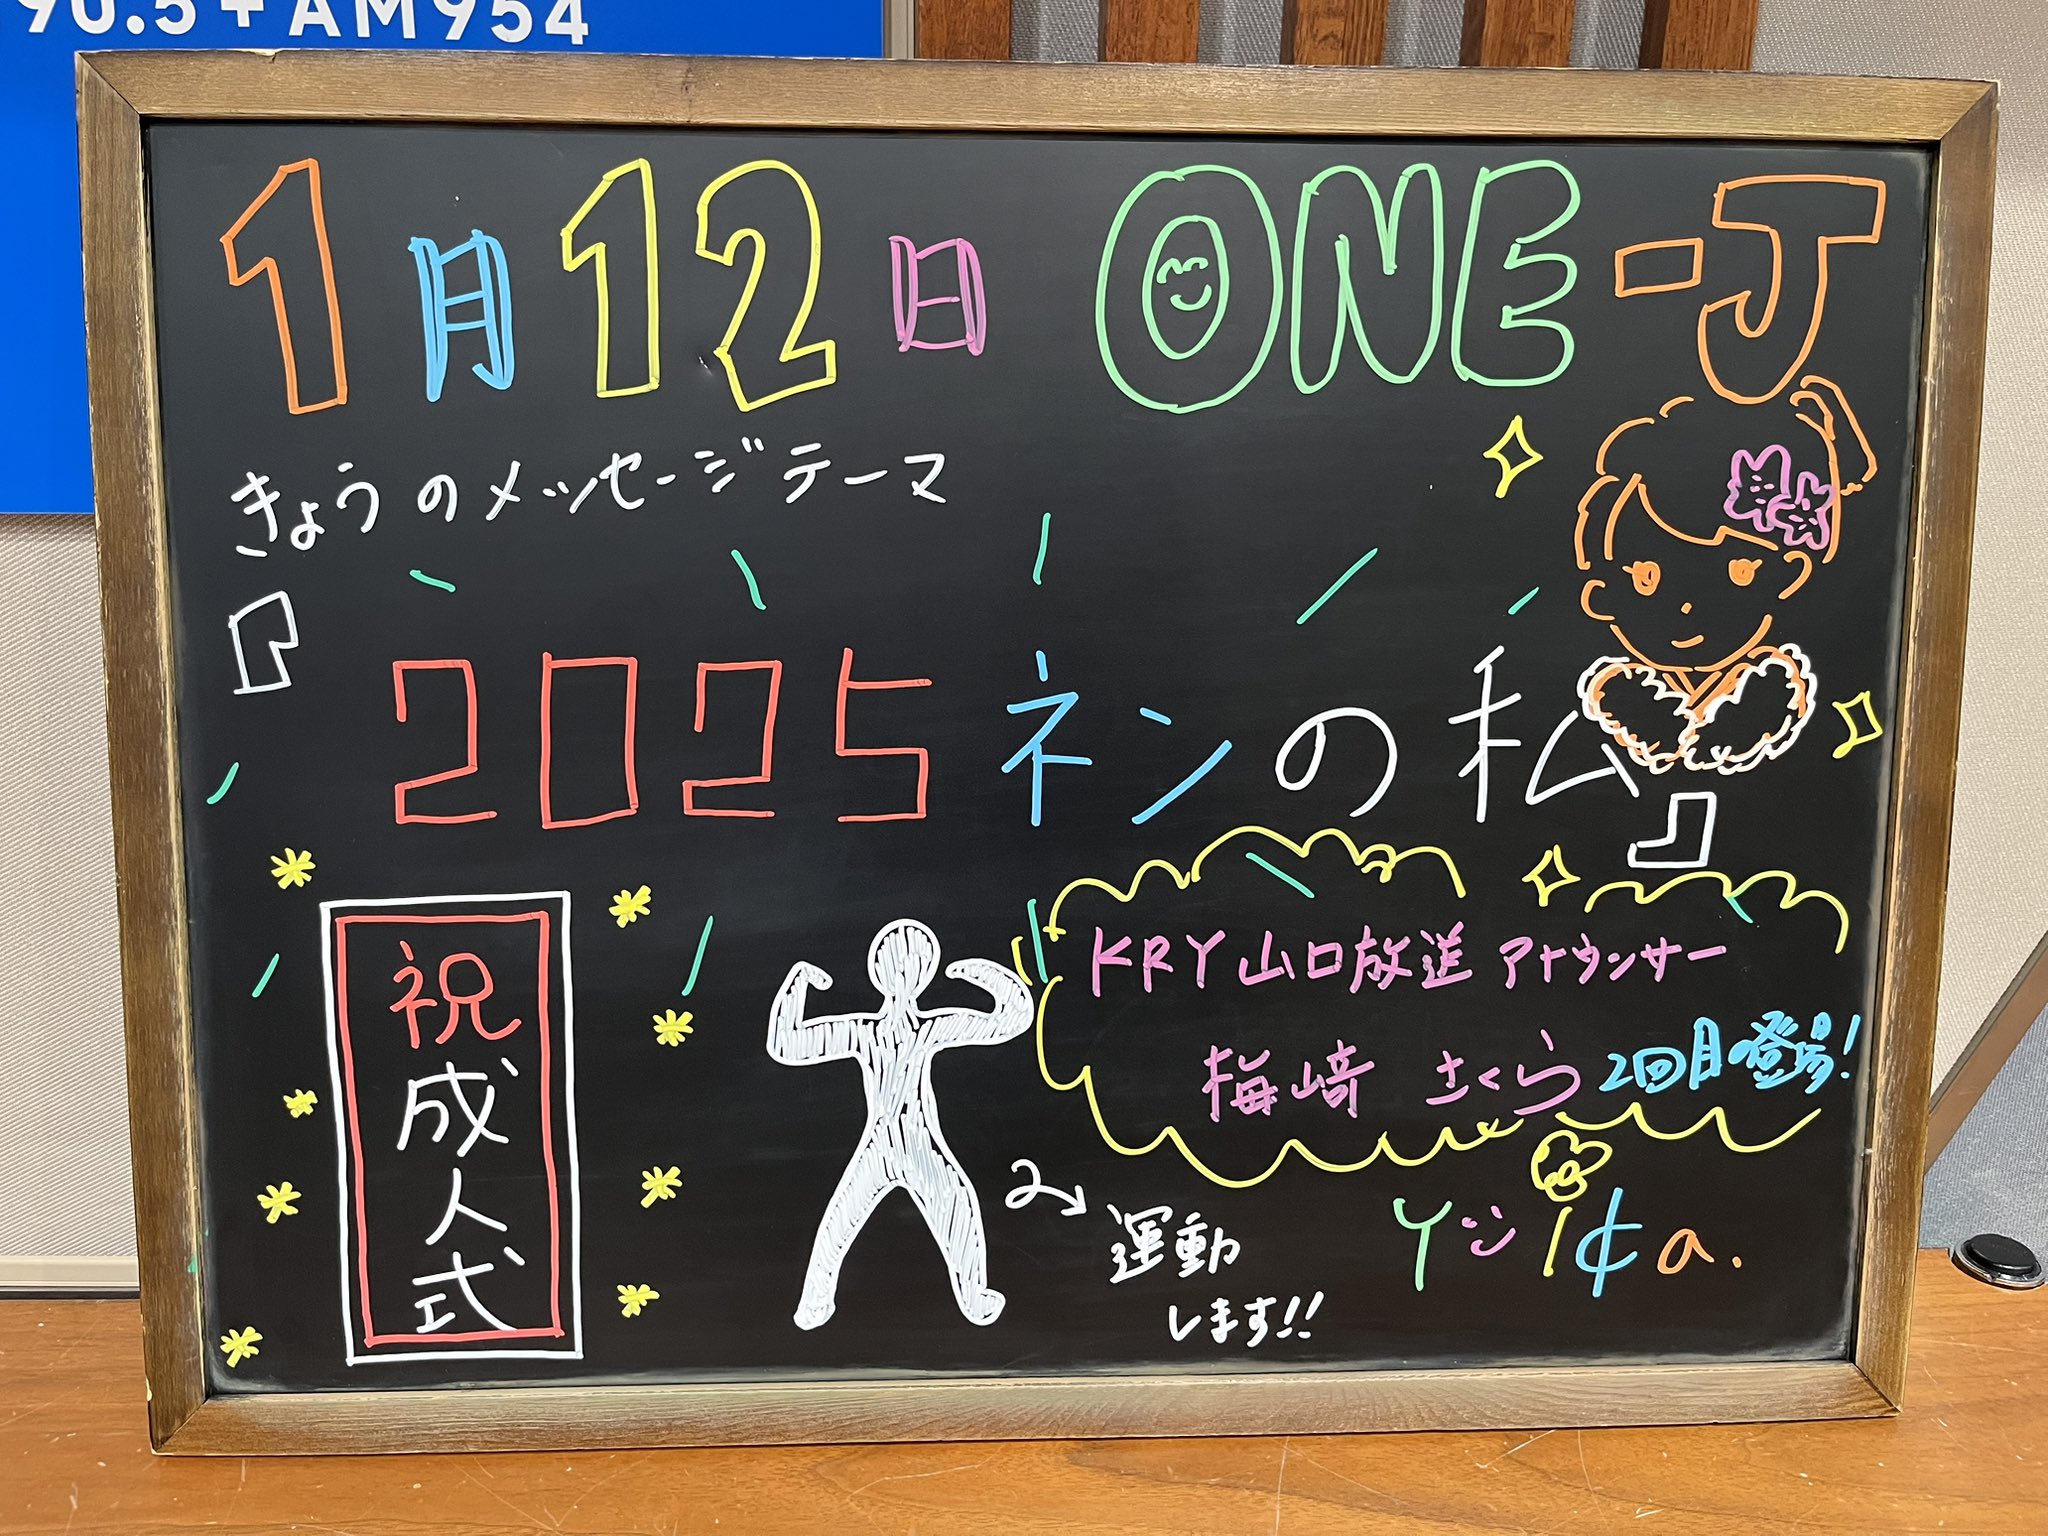 90.5+AM954
1月12日 ONE-J
きょうのメッセージテーマ
『2025ネンの私』
祝成人式
KRY山口放送 アナウンサー
梅﨑 さくら 2回目登場!
運動
します!!